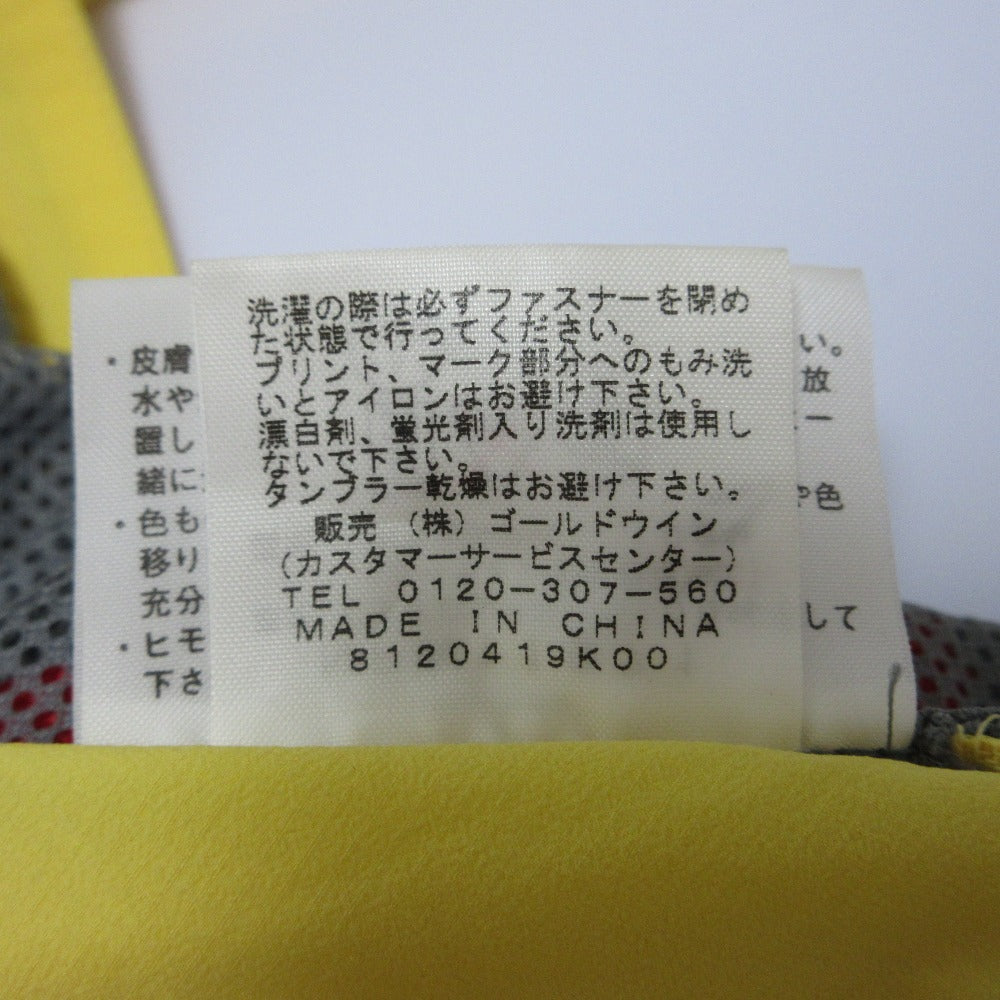 洗濯の際は必ずファスナーを閉め
た状態で行ってください。
プリント、マーク部分へのもみ洗
いとアイロンはお避け下さい。
漂白剤、蛍光剤入り洗剤は使用し
ないで下さい。
タンブラー乾燥はお避け下さい。
販売 (株)ゴールドウイン
(カスタマーサービスセンター)
TEL 0120-307-560
MADE IN CHINA
8120419K00
・皮膚
水や
置し
緒に
・色も
移り
充分
・ヒモ
下さ
い。
放
ー
や色
して